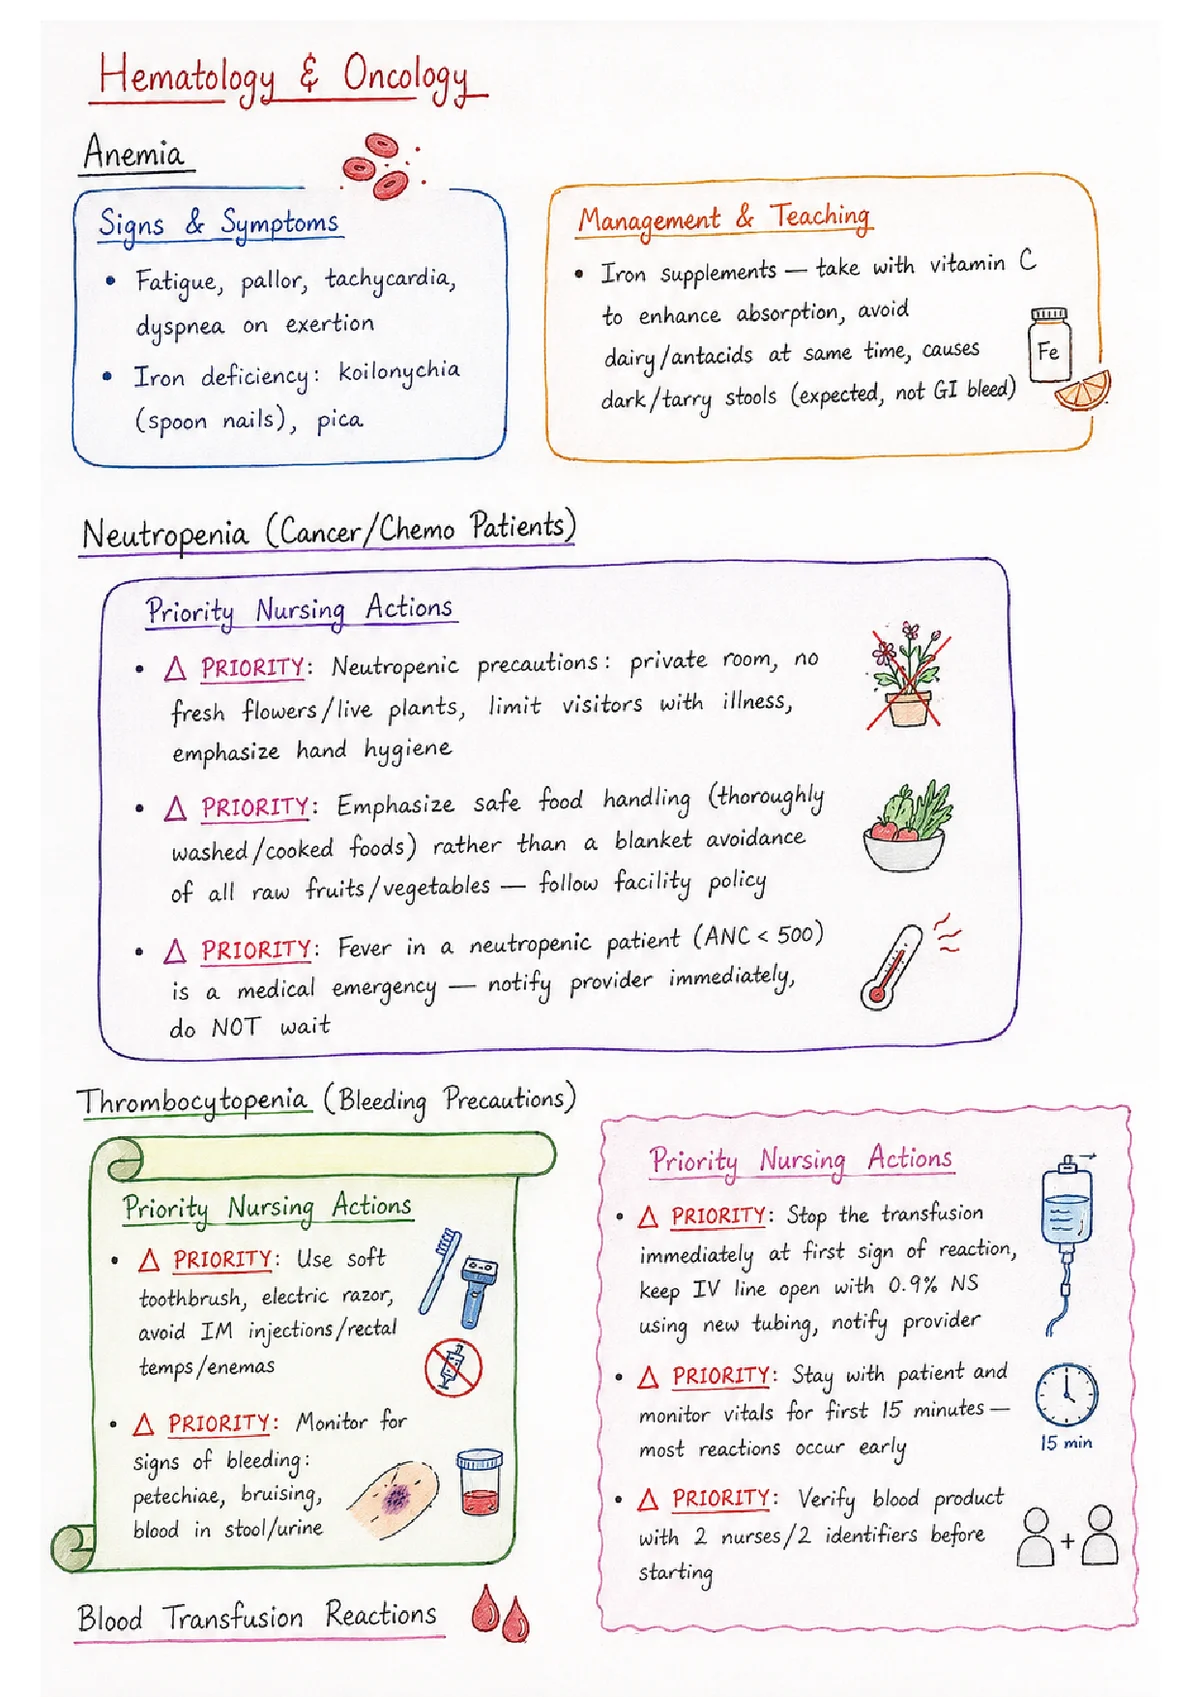 Hematology & Oncology
Anemia
Signs & Symptoms
• Fatigue, pallor, tachycardia,
dyspnea on exertion
• Iron deficiency: koilonychia
(spoon nails), pica
Management & Teaching
• Iron supplements — take with vitamin C
to enhance absorption, avoid
dairy/antacids at same time, causes
dark/tarry stools (expected, not GI bleed)
Fe
Neutropenia (Cancer/Chemo Patients)
Priority Nursing Actions
• △ PRIORITY: Neutropenic precautions: private room, no
fresh flowers/live plants, limit visitors with illness,
emphasize hand hygiene
• △ PRIORITY: Emphasize safe food handling (thoroughly
washed/cooked foods) rather than a blanket avoidance
of all raw fruits/vegetables — follow facility policy
• △ PRIORITY: Fever in a neutropenic patient (ANC < 500)
is a medical emergency — notify provider immediately,
do NOT wait
Thrombocytopenia (Bleeding Precautions)
Priority Nursing Actions
• △ PRIORITY: Use soft
toothbrush, electric razor,
avoid IM injections/rectal
temps/enemas
• △ PRIORITY: Monitor for
signs of bleeding:
petechiae, bruising,
blood in stool/urine
Blood Transfusion Reactions
Priority Nursing Actions
• △ PRIORITY: Stop the transfusion
immediately at first sign of reaction,
keep IV line open with 0.9% NS
using new tubing, notify provider
• △ PRIORITY: Stay with patient and
monitor vitals for first 15 minutes —
most reactions occur early
15 min
• △ PRIORITY: Verify blood product
with 2 nurses/2 identifiers before
starting
+